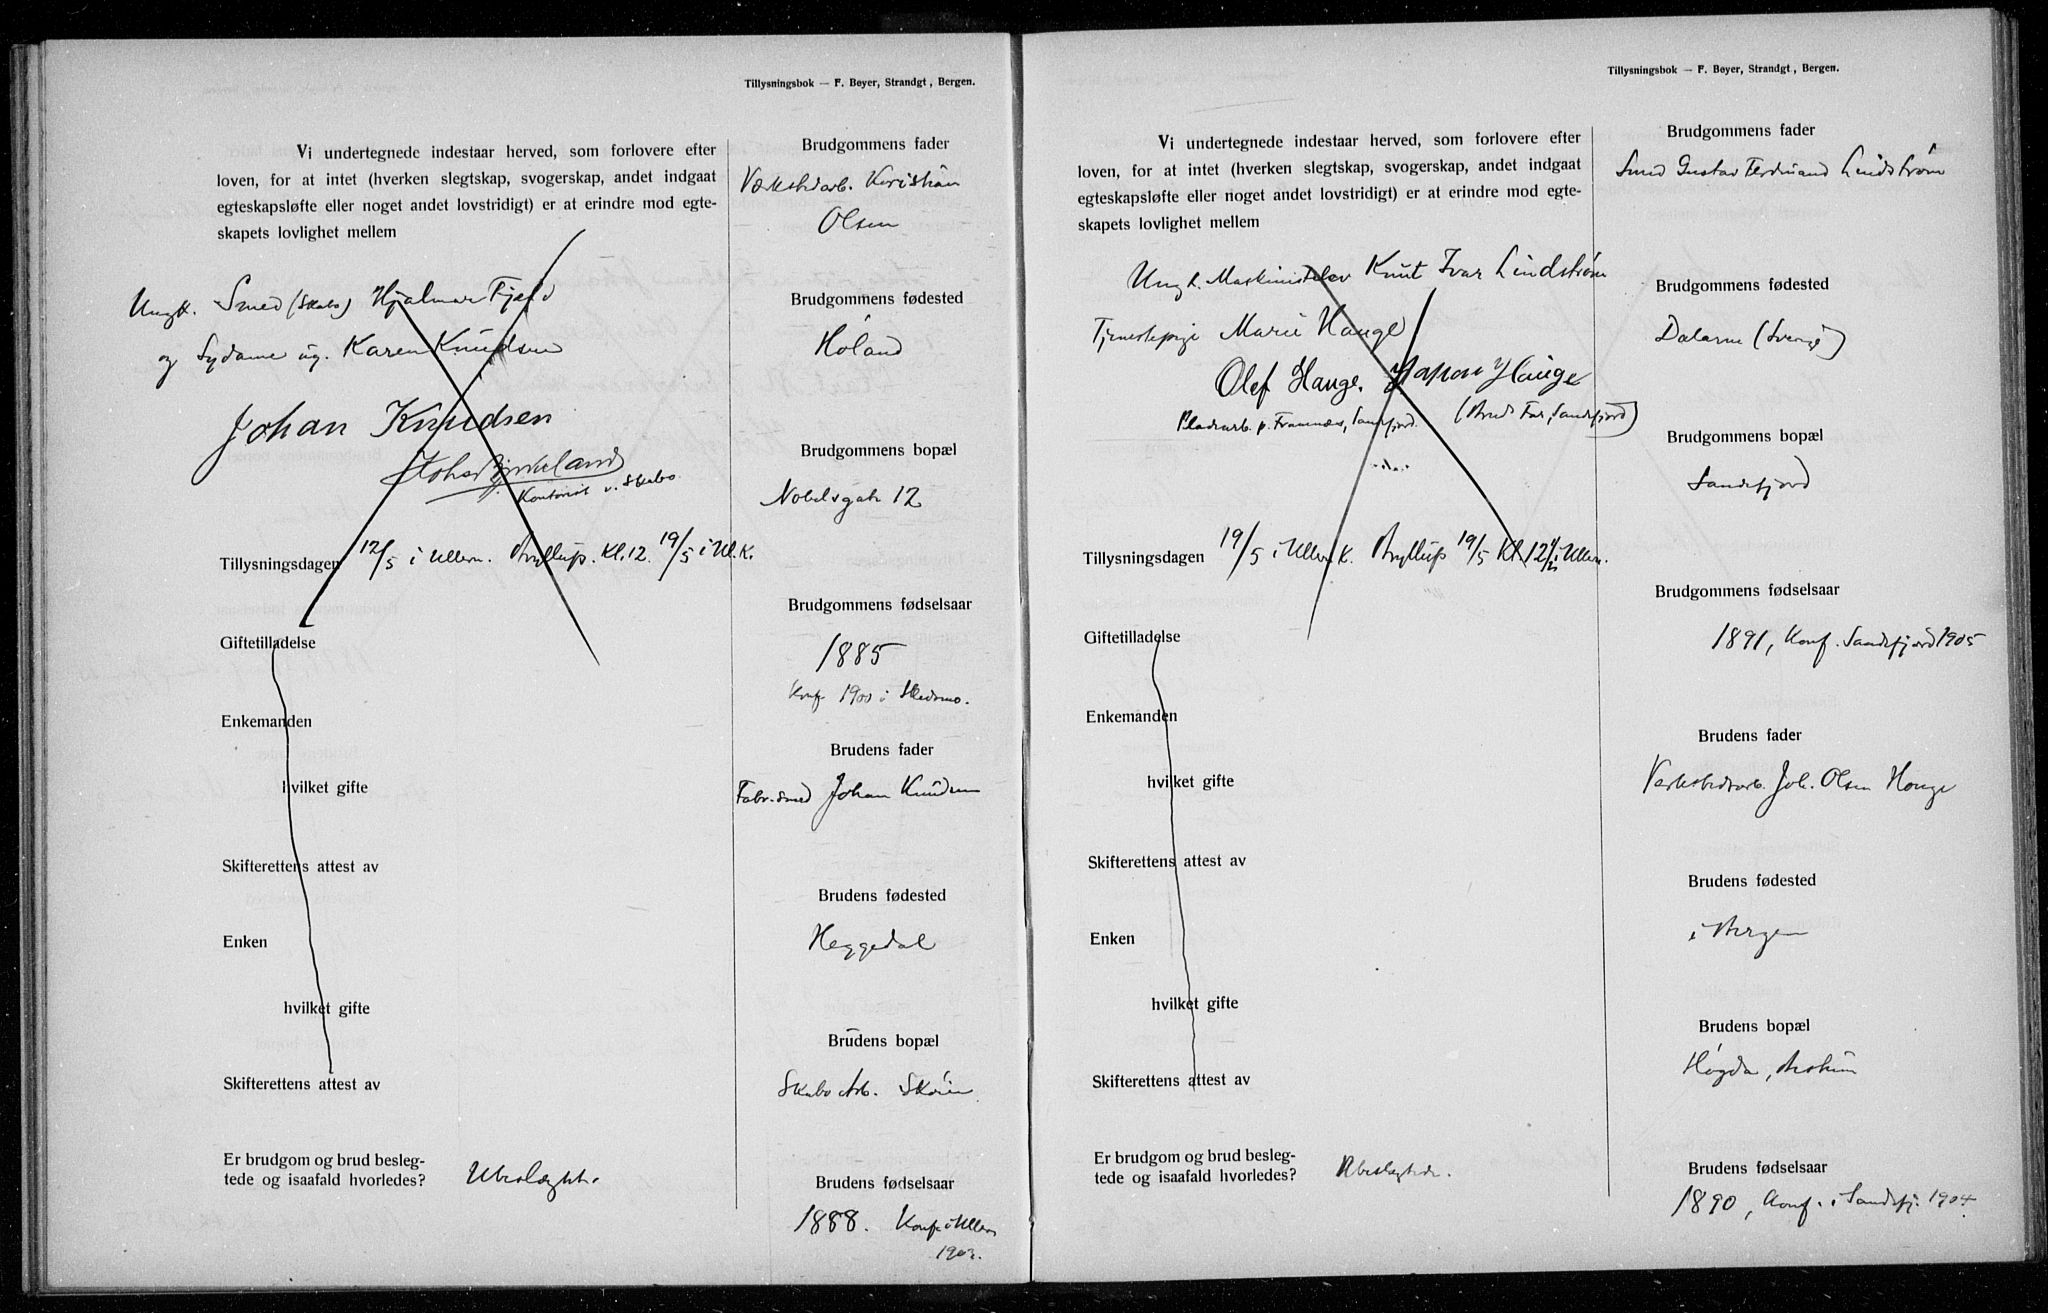 Tillysningsbok — F. Beyer, Strandgt, Bergen.
Vi undertegnede indestaar herved, som forlovere efter
loven, for at intet (hverken slegtskap, svogerskap, andet indgaat
egteskapsløfte eller noget andet lovstridigt) er at erindre mod egte-
skapets lovlighet mellem
Ungk. Smed (Skabo) Hjalmar Fjeld
og Sydame ug. Karen Knudsen
Johan Knudsen
Birkeland
Kontorist v. Skabo
Tillysningsdagen 12/5 i Ullern. Bryllup. Kl. 12. 19/5 i Ul. K.
Giftetilladelse
Enkemanden
hvilket gifte
Skifterettens attest av
Enken
hvilket gifte
Skifterettens attest av
Er brudgom og brud besleg-
tede og isaafald hvorledes? Ubeslægtet.
Brudgommens fader
Værkstedarb. Kristian
Olsen
Brudgommens fødested
Høland
Brudgommens bopæl
Nobelsgate 12
Brudgommens fødselsaar
1885
Konf. 1900 i Skedsmo.
Brudens fader
Fabr.smed Johan Knudsen
Brudens fødested
Heggedal
Brudens bopæl
Skabo Arb. Skøien
Brudens fødselsaar
1888. Konf. i Ullern
1903.
Tillysningsbok — F. Beyer, Strandgt, Bergen.
Vi undertegnede indestaar herved, som forlovere efter
loven, for at intet (hverken slegtskap, svogerskap, andet indgaat
egteskapsløfte eller noget andet lovstridigt) er at erindre mod egte-
skapets lovlighet mellem
Ungk. Maskinistelev Knut Ivar Lindstrøm
Tjenestepige Marie Hauge
Olef Hauge. Håkon Hauge
p. Framnæs, Sandefjord. (Brud. Far, Sandefjord)
Tillysningsdagen 19/5 i Ullern K. Bryllup 19/5 Kl. 12 1/2 i Ullern.
Giftetilladelse
Enkemanden
hvilket gifte
Skifterettens attest av
Enken
hvilket gifte
Skifterettens attest av
Er brudgom og brud besleg-
tede og isaafald hvorledes? Ubeslægtede.
Brudgommens fader
Smed Gustav Ferdinand Lindstrøm
Brudgommens fødested
Dalarne (Sverige)
Brudgommens bopæl
Sandefjord
Brudgommens fødselsaar
1891, Konf. Sandefjord 1905
Brudens fader
Verkstedsarb. Joh. Olsen Hauge
Brudens fødested
i Bergen
Brudens bopæl
Høgda, Bestum
Brudens fødselsaar
1890, Konf. i Sandefj. 1904.